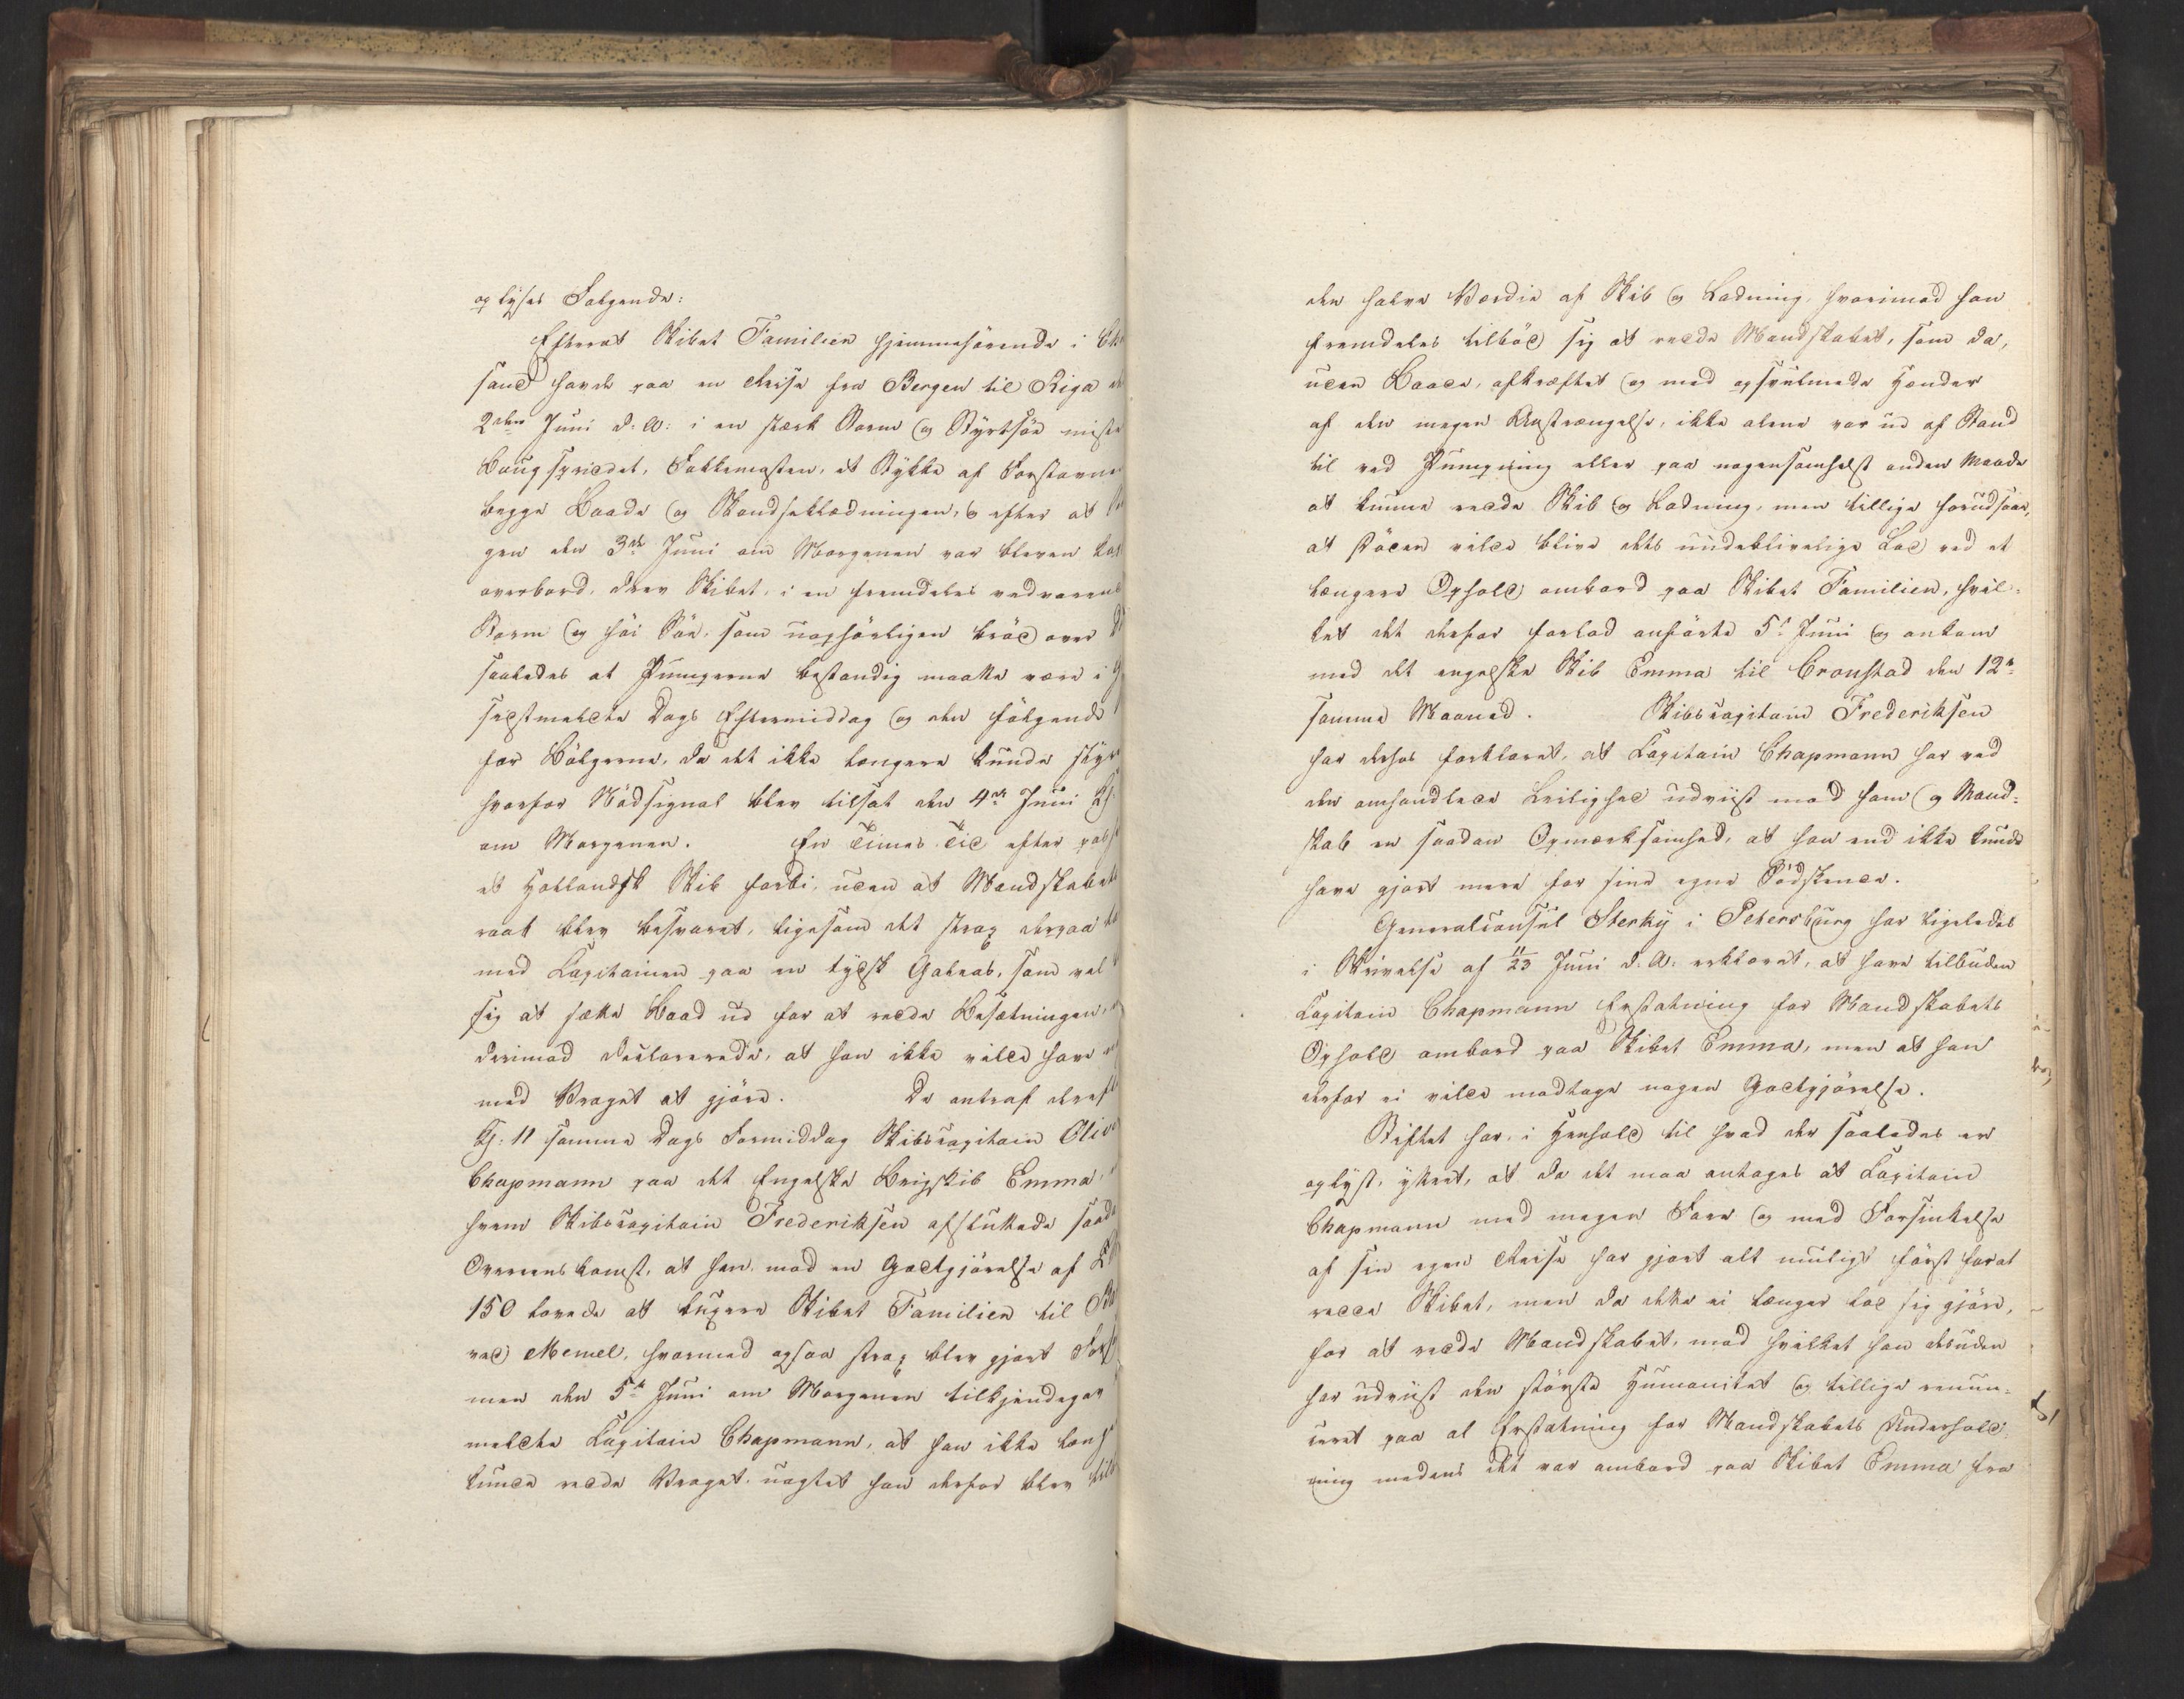 oplyses Følgende:
Efterat Skibet Familien hjemmehørende i
sand havde paa en Reise fra Bergen til Riga
2den Juni d: A: i en stærk Storm og Styrtsøe miste
Bougsprydet, Fokkemasten, et Stykke af Forstavne
begge Baade og Skandseklædningen, og efter at
gen den 3de Juni om Morgenen var bleven kas
overbord, drev Skibet, i en fremdeles vedvarende
Storm og høi Søe, som uophørligen brød over
saaledes at Pumperne bestandig maatte være i
sidstmeldte Dags Eftermiddag og den følgende
for Bølgerne, da det ikke længere kunde styr
hvorfor Nødsignal blev tilsat den 4de Juni Kl.
om Morgenen. En Times Tid efter
et Hollandsk Skib forbi, uden at Mandskabets
raab blev besvaret, ligesom det strax derpaa
med Capitainen paa en tydsk Galeas, som vel
sig at sætte Baad ud for at redde Besætningen,
derimod declarerede, at han ikke vilde have
med Vraget at gjøre. Da antraf
Kl: 11 samme Dags Formiddag Skibscapitain Olive
Chapmann paa det Engelske Brigskib Emma,
hvem Skibscapitain Frederiksen afsluttede saada
Overenskomst, at han, mod en Godtgjørelse af
150 lovede at bugsere Skibet Familien til
ved Memel, hvormed ogsaa strax blev gjort
men den 5te Juni om Morgenen tilkjendegav
meldte Capitain Chapmann, at han ikke læng
kunde redde Vraget, uagtet han derfor blev
den halve Værdie af Skib og Ladning, hvorimod han
fremdeles tilbød sig at redde Mandskabet, som da,
uden Baade, afkræftet og med opsvulmede Hænder
af den megen Anstrængelse, ikke alene var ud af Stand
til ved Pumpning eller paa nogensomhelst anden Maade
at kunne redde Skib og Ladning, men tillige forudsaae,
at Døden vilde blive dets uudeblivelige Lod ved et
længere Ophold ombord paa Skibet Familien, hvil-
ket det derfor forlod anførte 5t Juni og ankom
med det engelske Skib Emma til Cronstad den 12te
samme Maaned. Skibscapitain Frederiksen
har derhos forklaret, at Capitain Chapmann har ved
den omhandlede Leilighed udviist mod ham og Mand-
skab en saadan Opmærksomhed, at han end ikke kunde
have gjort mere for sine egne Sødskende.
Generalconsul Sterky i Petersburg har ligeledes
i Skrivelse af 11/23 Juni d. A. erklæret, at have tilbuden
Capitain Chapmann Erstatning for Mandskabets
Ophold ombord paa Skibet Emma, men at han
derfor ei vilde modtage nogen Godtgjørelse.
Stiftet har, i Henhold til hvad der saaledes er
oplyst, yttret, at da det maa antages at Capitain
Chapmann med megen Fare og med Forsinkelse
af sin egen Reise har gjort alt muligt først forat
redde Skibet, men da dette ei længer lod sig gjøre,
for at redde Mandskabet, mod hvilket han desuden
har udviist den største Humanitet og tillige renun-
ceret paa al Erstatning for Mandskabets Underhold-
ning medens det var ombord paa Skibet Emma fra